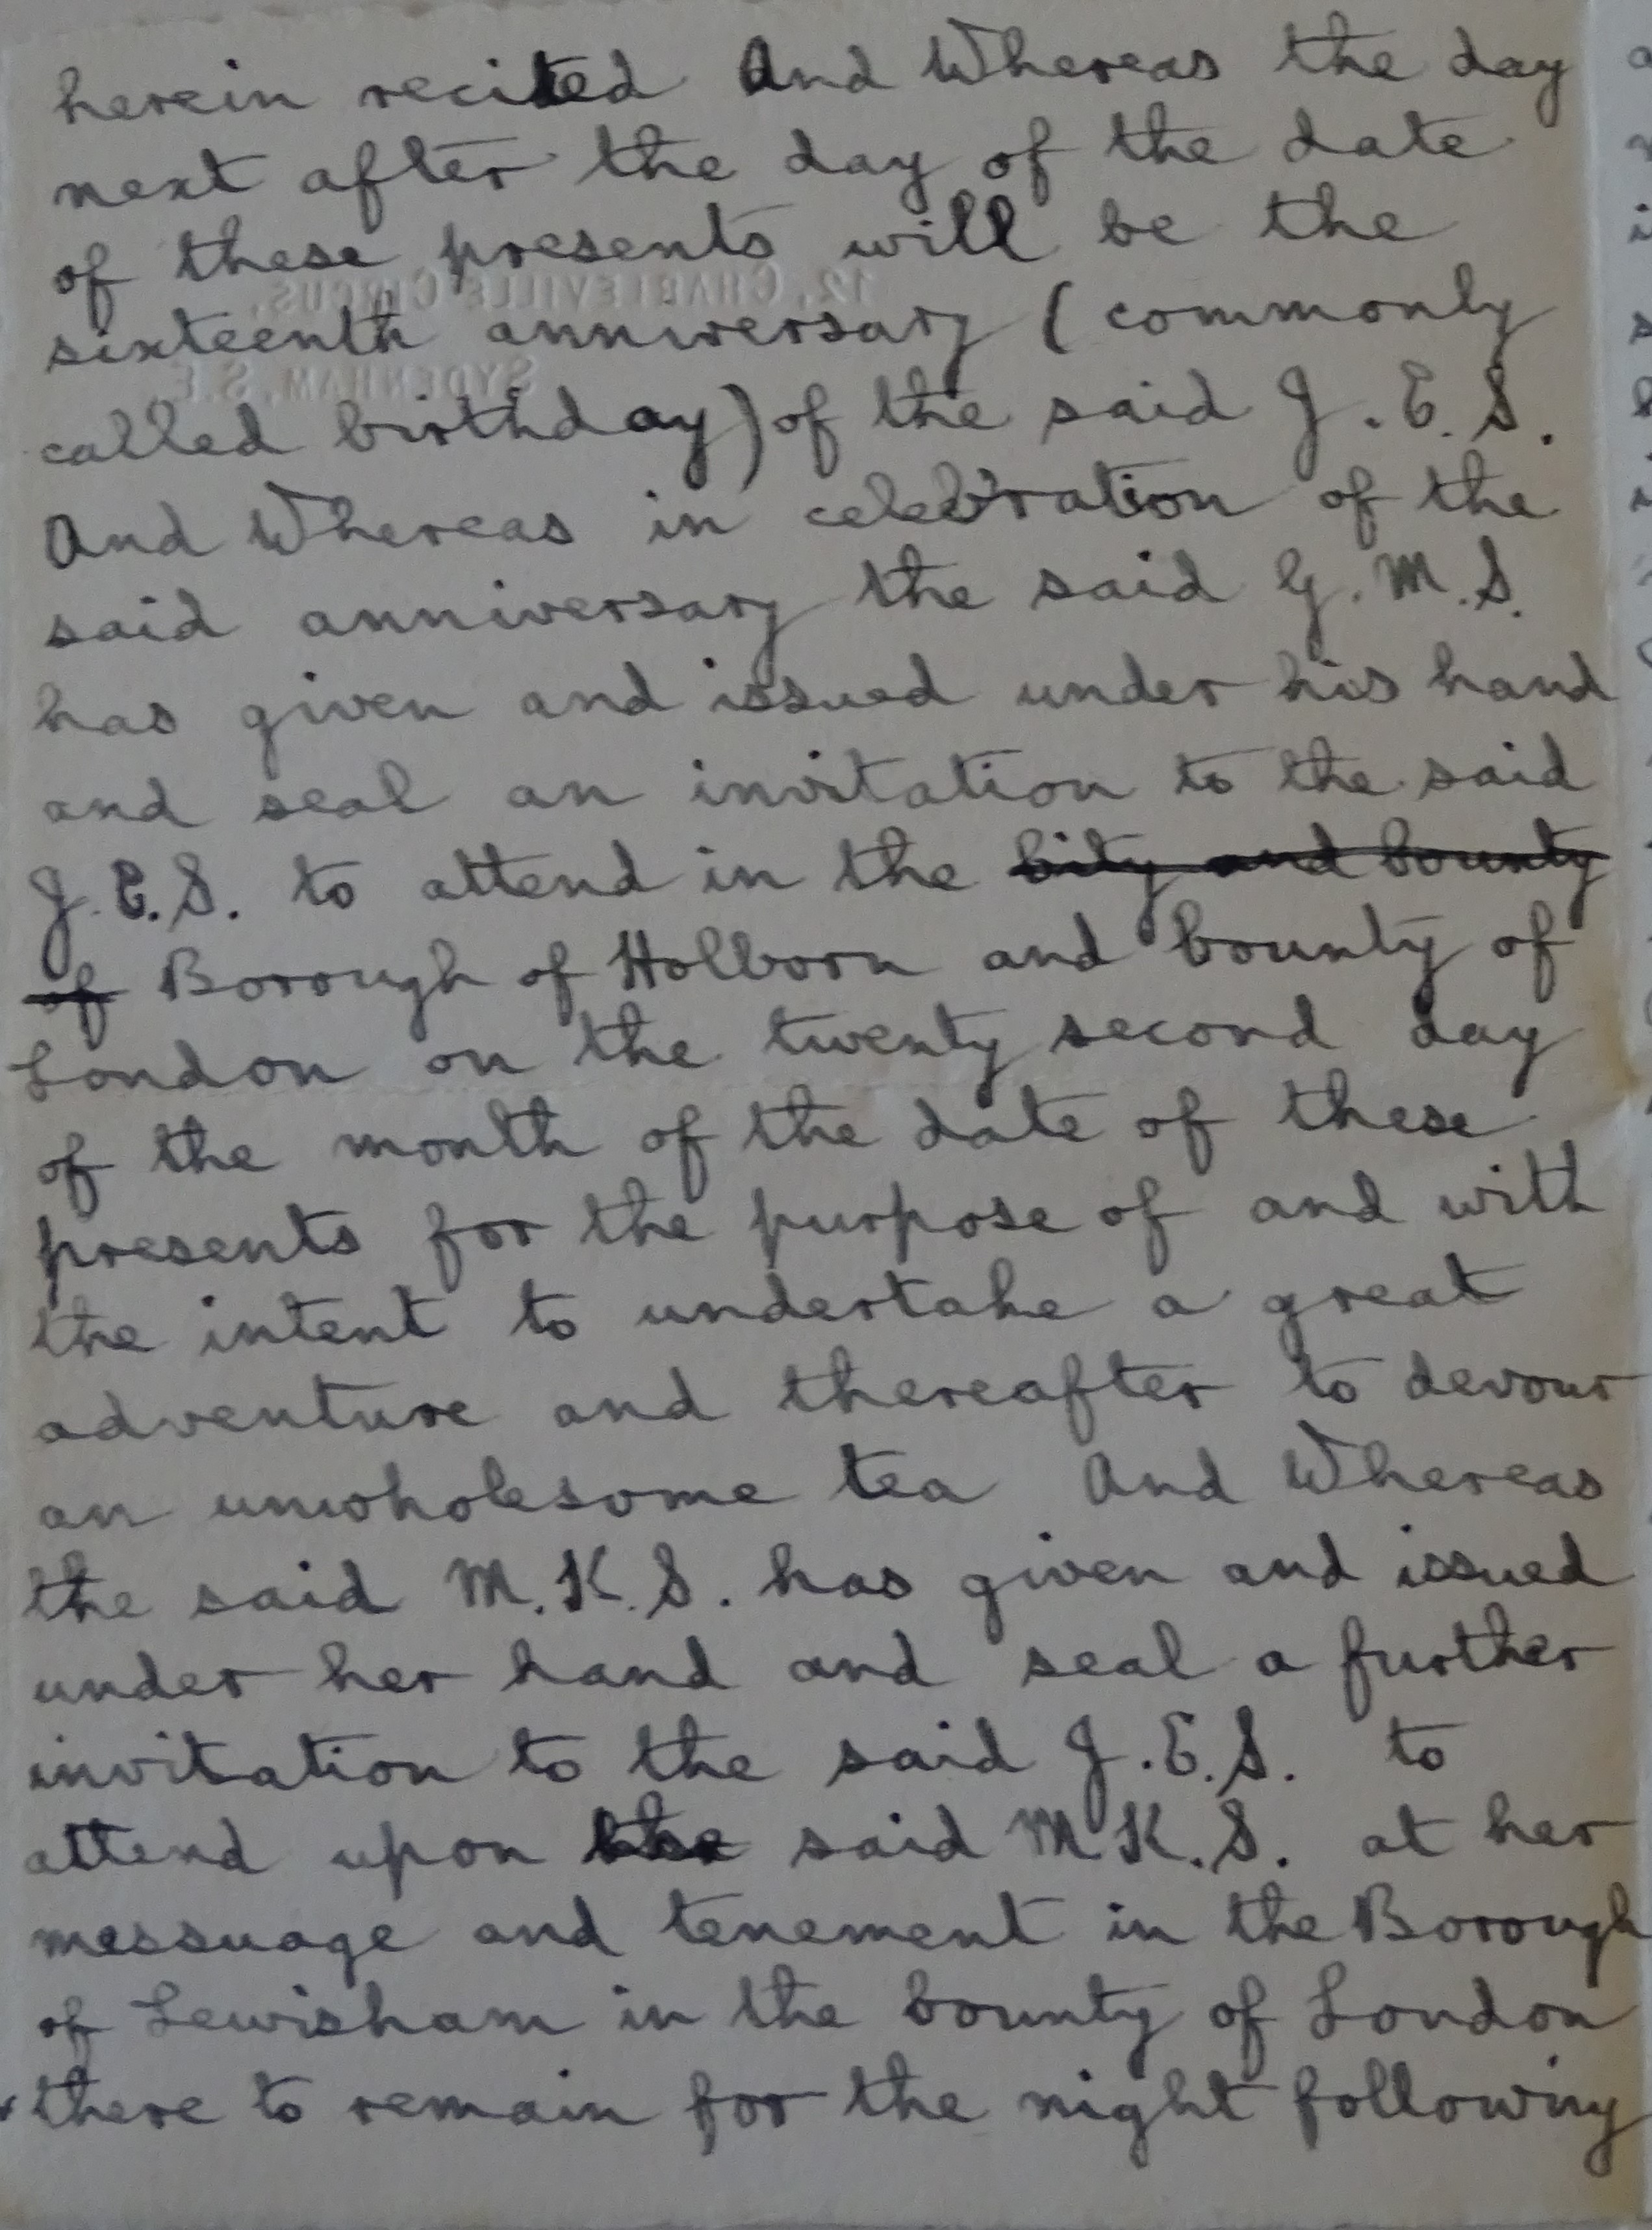 herein recited And Whereas the day
next after the day of the date
of these presents will be the
12, CHARLEVILLE CIRCUS,
sixteenth anniversary (commonly
SYDENHAM, S.E.
called birthday) of the said J.E.S.
And Whereas in celebration of the
said anniversary the said G.M.S.
has given and issued under his hand
and seal an invitation to the said
J.E.S. to attend in the City and County
of Borough of Holborn and County of
London on the twenty second day
of the month of the date of these
presents for the purpose of and with
the intent to undertake a great
adventure and thereafter to devour
an unwholesome tea And Whereas
the said M.K.S. has given and issued
under her hand and seal a further
invitation to the said J.E.S. to
attend upon the said M.K.S. at her
messuage and tenement in the Borough
of Lewisham in the County of London
there to remain for the night following